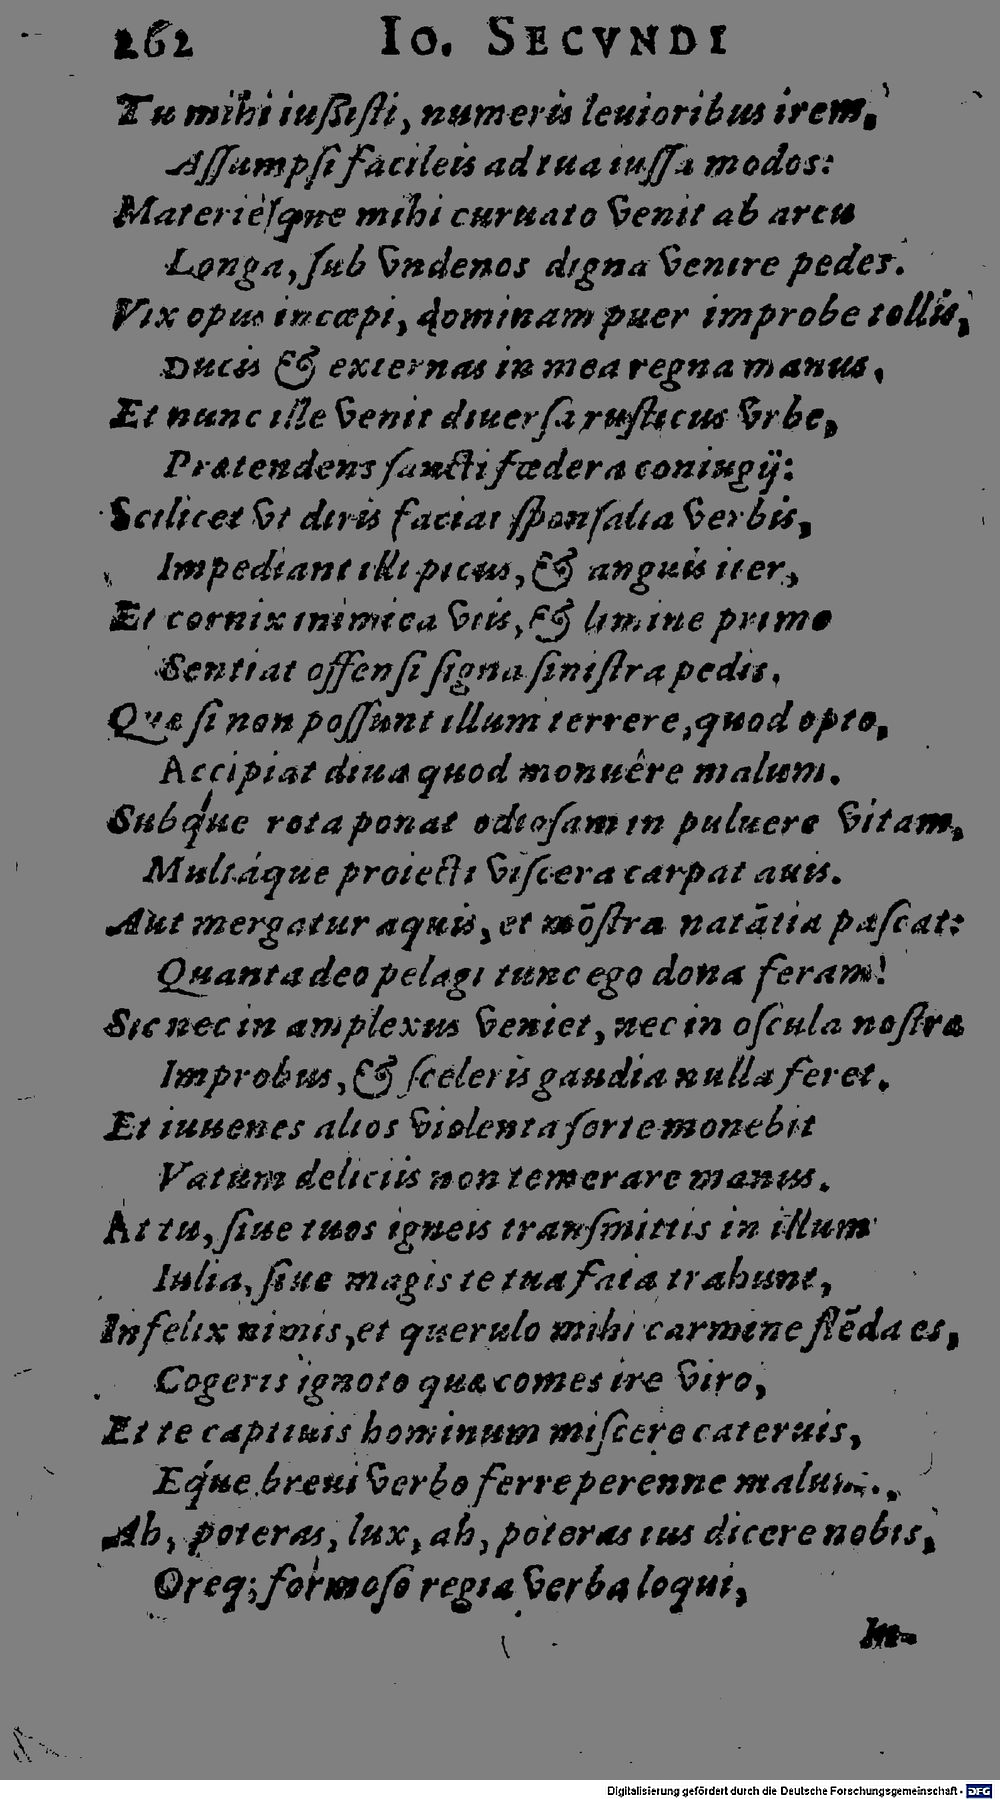 262 IO. SECVNDI
Tu mihi iußisti, numeris leuioribus irem,
Aſſumpſi facileis ad tua iuſſa modos:
Materiéſque mihi curuato venit ab arcu
Longa, ſub vndenos digna venire pedes.
Vix opus incœpi, dominam puer improbe tollis,
Ducis & externas in mea regna manus,
Et nunc ille venit diuerſa ruſticus vrbe,
Prætendens ſancti fœdera coniugij:
Scilicet vt diris faciat ſponſalia verbis,
Impediant illi picus, & anguis iter,
Et cornix inimica viis, & limine primo
Sentiat offenſi ſigna ſiniſtra pedis.
Quæ ſi non poſſunt illum terrere, quod opto,
Accipiat diua quod monuêre malum.
Subq́ue rota ponat odioſam in puluere vitam,
Multáque proiecti viſcera carpat auis.
Aut mergatur aquis, et mōſtra natātia paſcat:
Quanta deo pelagi tunc ego dona feram!
Sic nec in amplexus veniet, nec in oſcula noſtra
Improbus, & ſceleris gaudia nulla feret.
Et iuuenes alios violenta ſorte monebit
Vatum deliciis non temerare manus.
At tu, ſiue tuos igneis tranſmittis in illum
Iulia, ſiue magis te tua fata trahunt,
Infelix nimis, et querulo mihi carmine flēda es,
Cogeris ignoto quæ comes ire viro,
Et te captiuis hominum miſcere cateruis,
Eq́ue breui verbo ferre perenne malum.
Ah, poteras, lux, ah, poteras ius dicere nobis,
Oreq; formoſo regia verba loqui,
In-
Digitalisierung gefördert durch die Deutsche Forschungsgemeinschaft - DFG